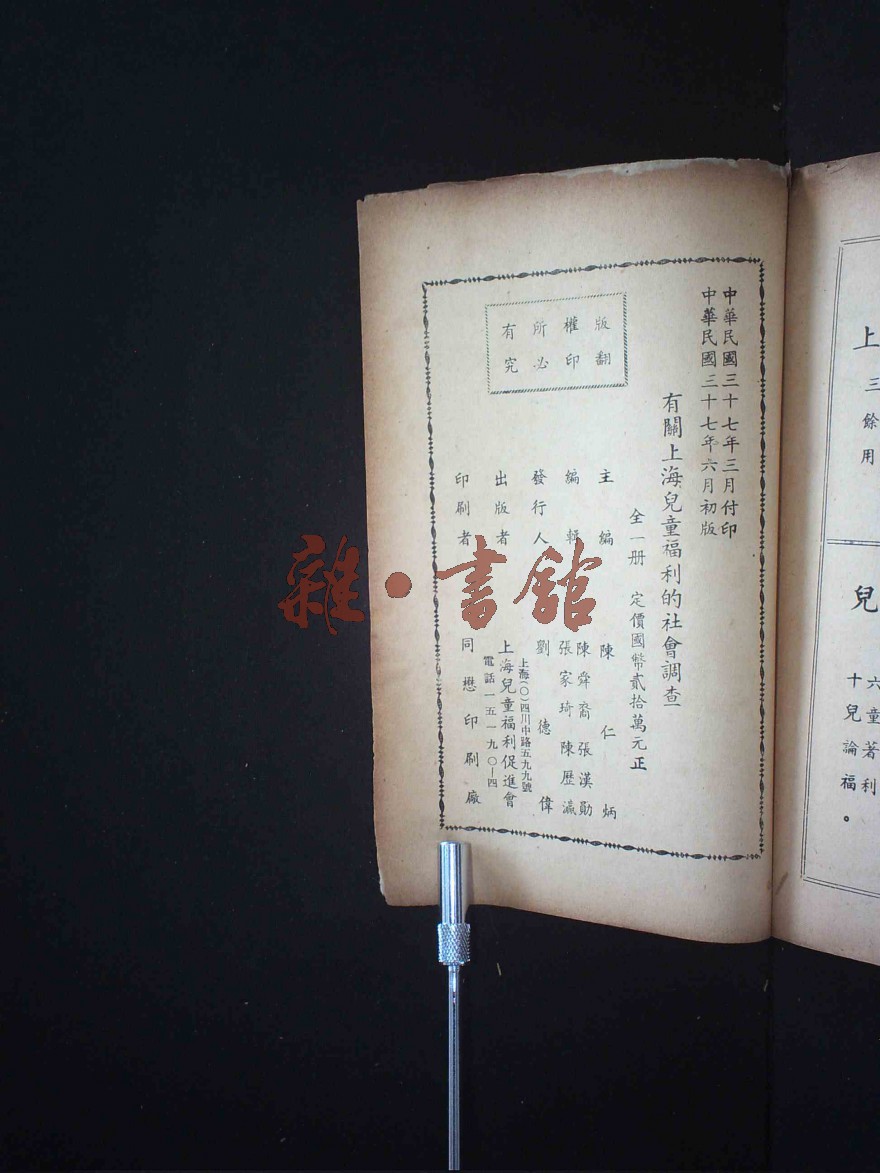 中華民國三十七年三月付印
中華民國三十七年六月初版
有關上海兒童福利的社會調查
全一册 定價國幣貳拾萬元正
主編 陳仁炳
編輯 陳舜裔 張漢勛
張家琦 陳歷瀛
發行人 劉德偉
出版者 上海兒童福利促進會
上海(〇)四川中路五九九號
電話一五一九〇—四
印刷者 同懋印刷廠
版權所有
翻印必究
上
三餘用
兒
六童著利
十兒論福。
雜·書館